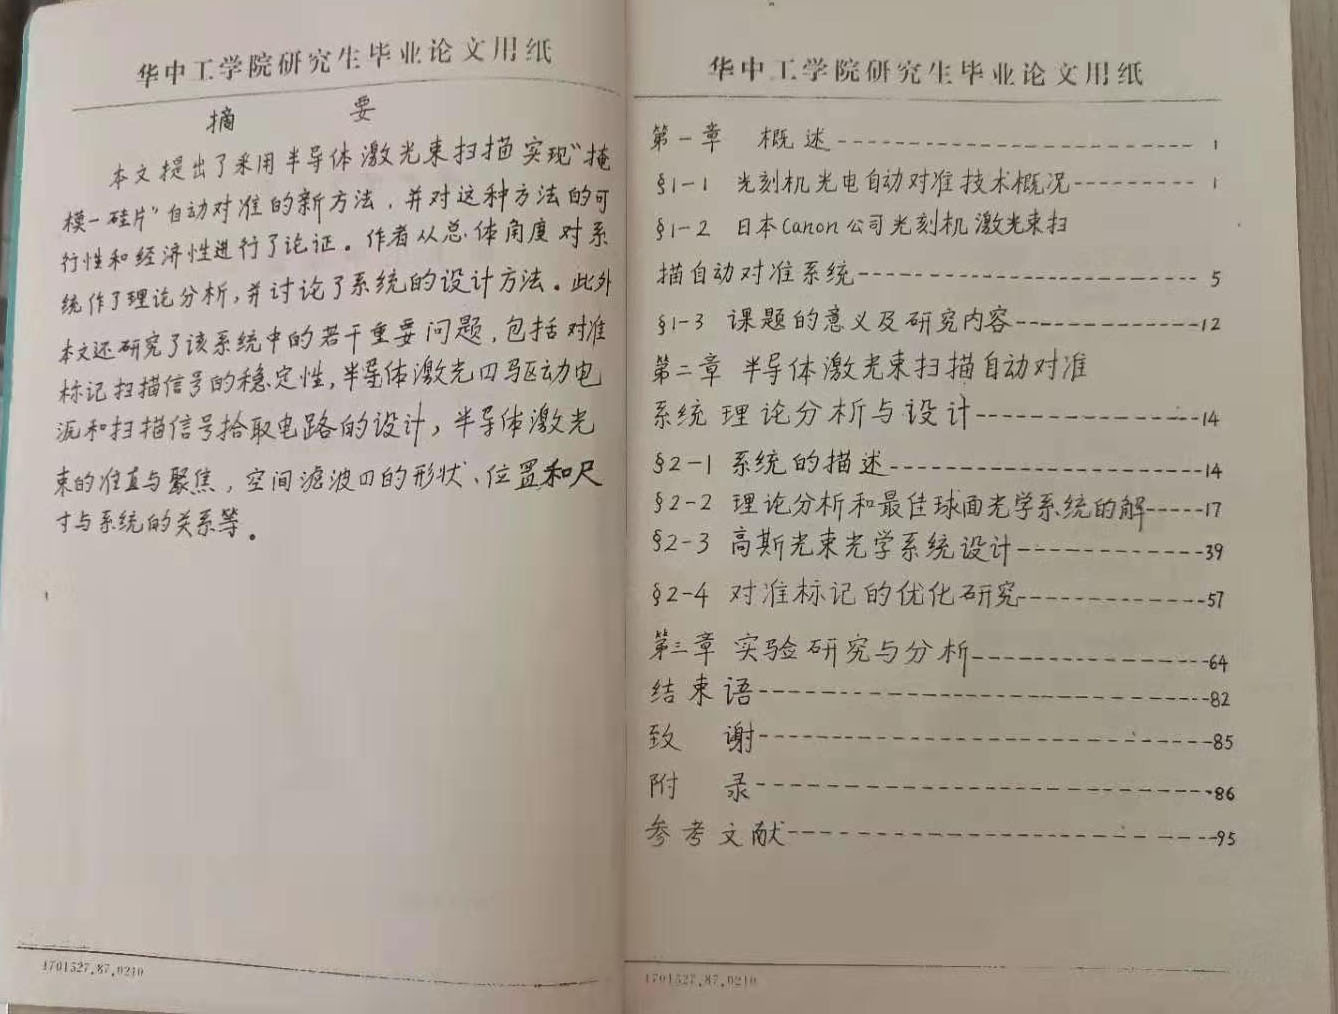 华中工学院研究生毕业论文用纸
摘 要
本文提出了采用半导体激光束扫描实现“掩
模-硅片”自动对准的新方法，并对这种方法的可
行性和经济性进行了论证。作者从总体角度对系
统作了理论分析,并讨论了系统的设计方法。此外
本文还研究了该系统中的若干重要问题,包括对准
标记扫描信号的稳定性,半导体激光四驱动电
源和扫描信号拾取电路的设计，半导体激光
束的准直与聚焦，空间滤波四的形状、位置和尺
寸与系统的关系等。
1701527.87.0210
华中工学院研究生毕业论文用纸
第一章 概述-------------------- 1
§1-1 光刻机光电自动对准技术概况--------- 1
§1-2 日本Canon公司光刻机激光束扫
描自动对准系统-------------------- 5
§1-3 课题的意义及研究内容------------12
第二章 半导体激光束扫描自动对准
系统理论分析与设计--------------14
§2-1 系统的描述-------------------14
§2-2 理论分析和最佳球面光学系统的解-----17
§2-3 高斯光束光学系统设计-----------39
§2-4 对准标记的优化研究-----------57
第三章 实验研究与分析--------------64
结束语---------------------------82
致 谢---------------------------85
附 录---------------------------86
参考文献-------------------------95
1701527.87.0210